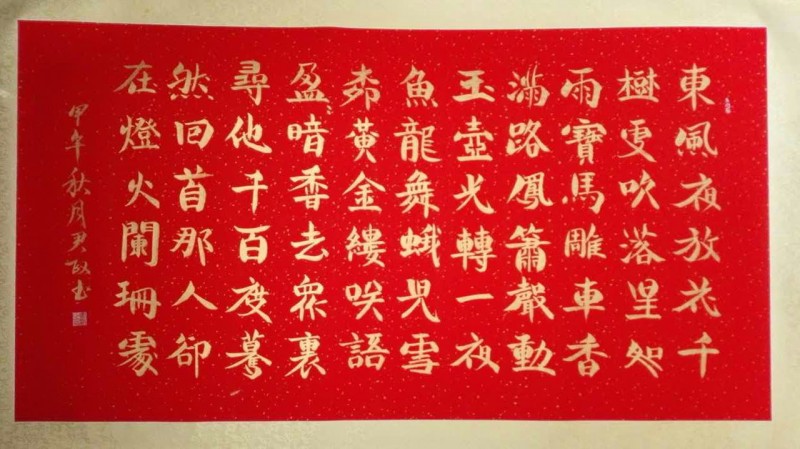 東風夜放花千
樹更吹落星如
雨寶馬雕車香
滿路鳳簫聲動
玉壺光轉一夜
魚龍舞蛾兒雪
柳黃金縷咲語
盈暗香去眾裏
尋他千百度驀
然回首那人卻
在燈火闌珊處
甲午秋月尹政书